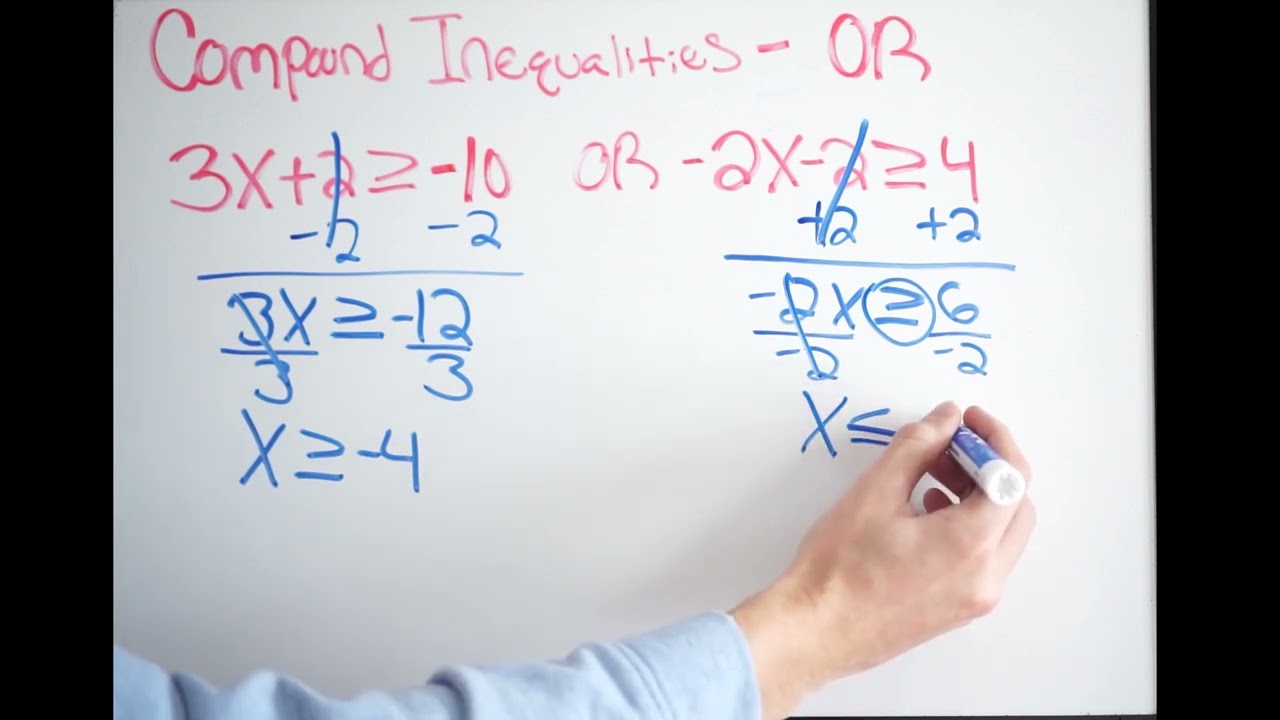 Compound Inequalities - OR
3x+2≥-10 OR -2x-2≥4
-2 -2 +2 +2
3x≥-12 -2x≥6
3 3 -2 -2
x≥-4 x≤